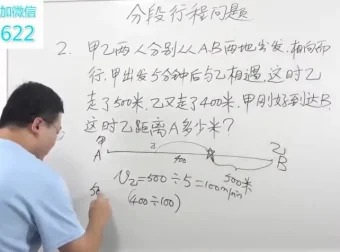 加微信
622
分段行程问题
2. 甲乙两人分别从AB两地出发,相向而
行,甲出发5分钟后与乙相遇,这时乙
走了500米,乙又走了400米,甲刚好到达B,
这时乙距离A多少米?
甲
A
a
400
500米
乙
B
V乙=500÷5=100m/min
(400÷100)